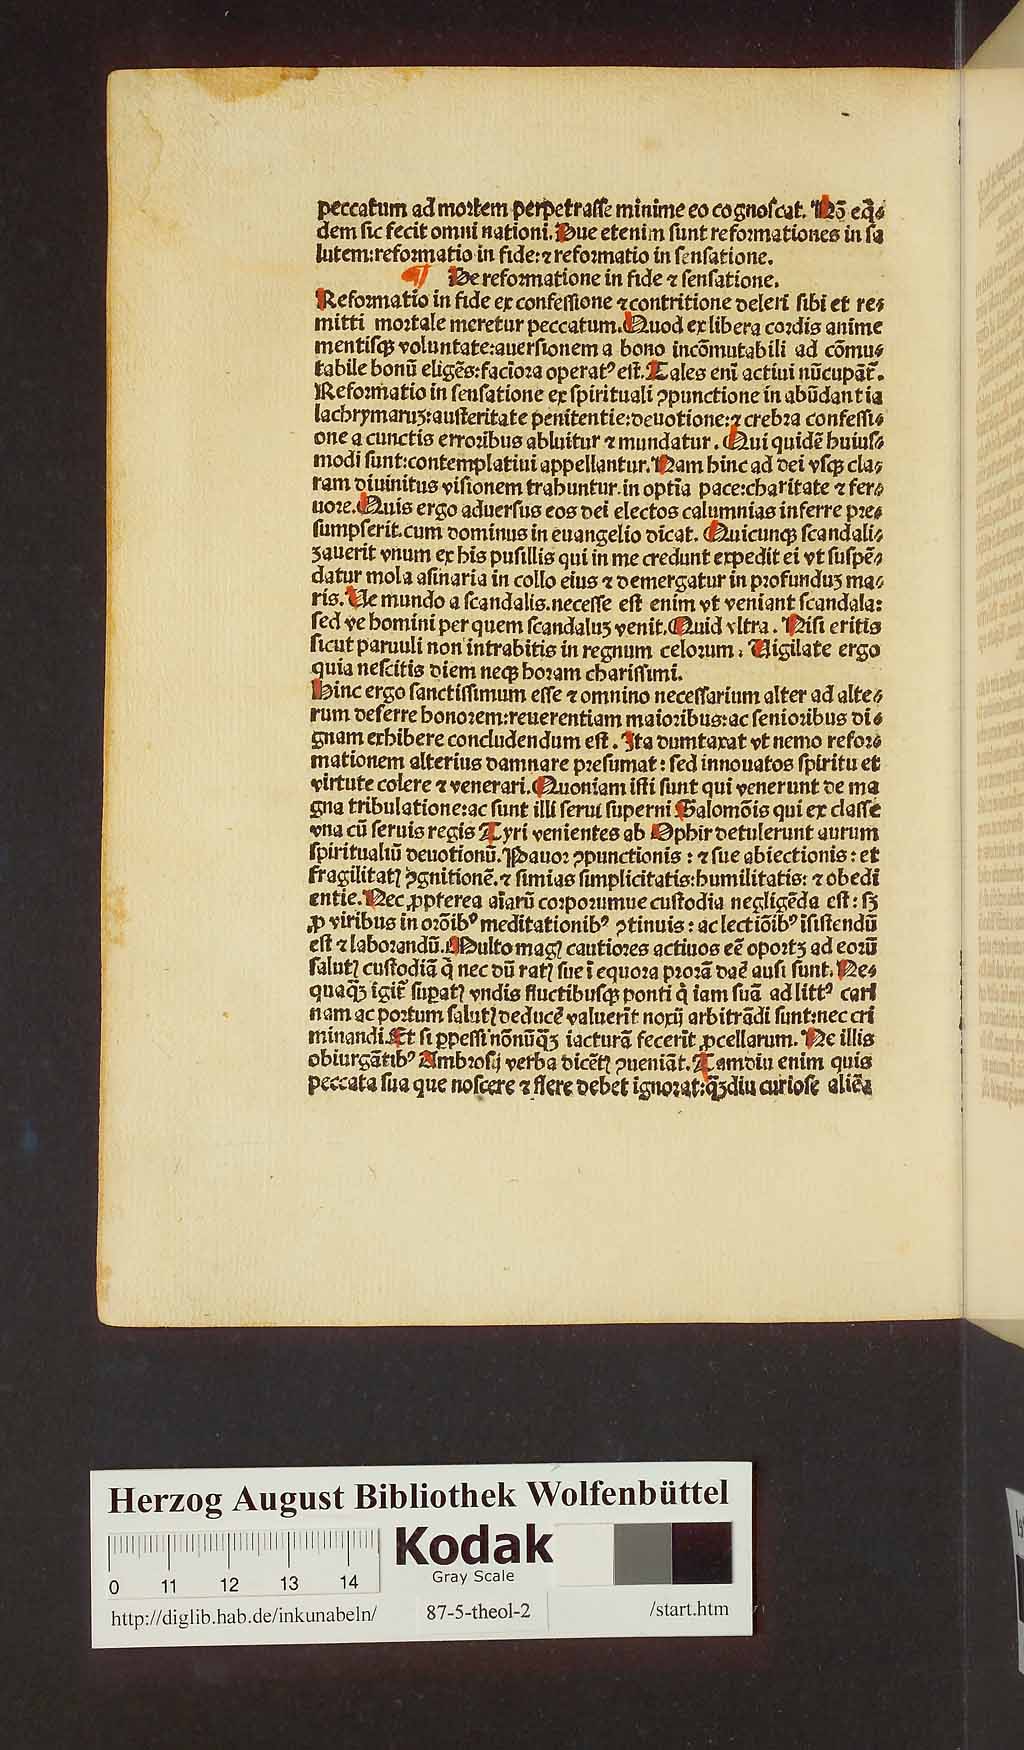 peccatum ad mortem perpetrasse minime eo cognoscat. Nō eq̄⸗
dem sic fecit omni nationi. Due etenim sunt reformationes in sa
lutem: reformatio in fide: ⁊ reformatio in sensatione.
¶ De reformatione in fide ⁊ sensatione.
Reformatio in fide ex confessione ⁊ contritione deleri sibi et re⸗
mitti mortale meretur peccatum. Quod ex libera cordis anime
mentisqꝫ voluntate: auersionem a bono incōmutabili ad cōmu⸗
tabile bonū eligēs: faciora operatꝰ est. Tales enī actiui nūcupāt̄.
Reformatio in sensatione ex spirituali ꝯpunctione in abūdantia
lachrymaruꝫ: austeritate penitentie: deuotione: ⁊ crebra confessi⸗
one a cunctis erroribus abluitur ⁊ mundatur. Qui quidē huius⸗
modi sunt: contemplatiui appellantur. Nam hinc ad dei vsqꝫ cla⸗
ram diuinitus visionem trahuntur. in optīa pace: charitate ⁊ fer⸗
uore. Quis ergo aduersus eos dei electos calumnias inferre pre⸗
sumpserit. cum dominus in euangelio dicat. Quicunqꝫ scandali⸗
zauerit vnum ex his pusillis qui in me credunt expedit ei vt suspē⸗
datur mola asinaria in collo eius ⁊ demergatur in profunduꝫ ma⸗
ris. Ve mundo a scandalis. necesse est enim vt veniant scandala:
sed ve homini per quem scandaluꝫ venit. Quid vltra. Nisi eritis
sicut paruuli non intrabitis in regnum celorum. Vigilate ergo
quia nescitis diem neqꝫ horam charissimi.
Hinc ergo sanctissimum esse ⁊ omnino necessarium alter ad alte⸗
rum deferre honorem: reuerentiam maioribus: ac senioribus di⸗
gnam exhibere concludendum est. Ita dumtaxat vt nemo refor⸗
mationem alterius damnare presumat: sed innouatos spiritu et
virtute colere ⁊ venerari. Quoniam isti sunt qui venerunt de ma
gna tribulatione: ac sunt illi serui superni Salomōis qui ex classe
vna cū seruis regis Tyri venientes ab Ophir detulerunt aurum
spiritualiū deuotionū. Pauor ꝯpunctionis: ⁊ sue abiectionis: et
fragilitatꝭ ꝯgnitionē. ⁊ simias simplicitatis: humilitatis: ⁊ obedi
entie. Nec ꝓpterea aīarū corporumue custodia negligēda est: sꝫ
ꝓ viribus in orōibꝰ meditationibꝰ ꝯtinuis: ac lectiōibꝰ īsistendū
est ⁊ laborandū. Multo magꝭ cautiores actiuos eē oportꝫ ad eorū
salutꝭ custodiā q̄ nec dū ratꝭ sue ī equora prorā daē ausi sunt. Ne⸗
quaqꝫ̄ igit̄ supatꝭ vndis fluctibusqꝫ ponti q̄ iam suā ad littꝰ cari
nam ac portum salutꝭ deducē valuerīt noxij arbitrādi sunt: nec cri
minandi. Et si ꝑpessi nōnūqꝫ̄ iacturā fecerīt ꝓcellarum. Ne illis
obiurgātibꝰ Ambrosij verba dicētꝭ ꝯueniāt. Tamdiu enim quis
peccata sua que noscere ⁊ flere debet ignorat: qꝫ̄diu curiose aliēa
Herzog August Bibliothek Wolfenbüttel
0 11 12 13 14
Kodak
Gray Scale
http://diglib.hab.de/inkunabeln/ 87-5-theol-2 /start.htm